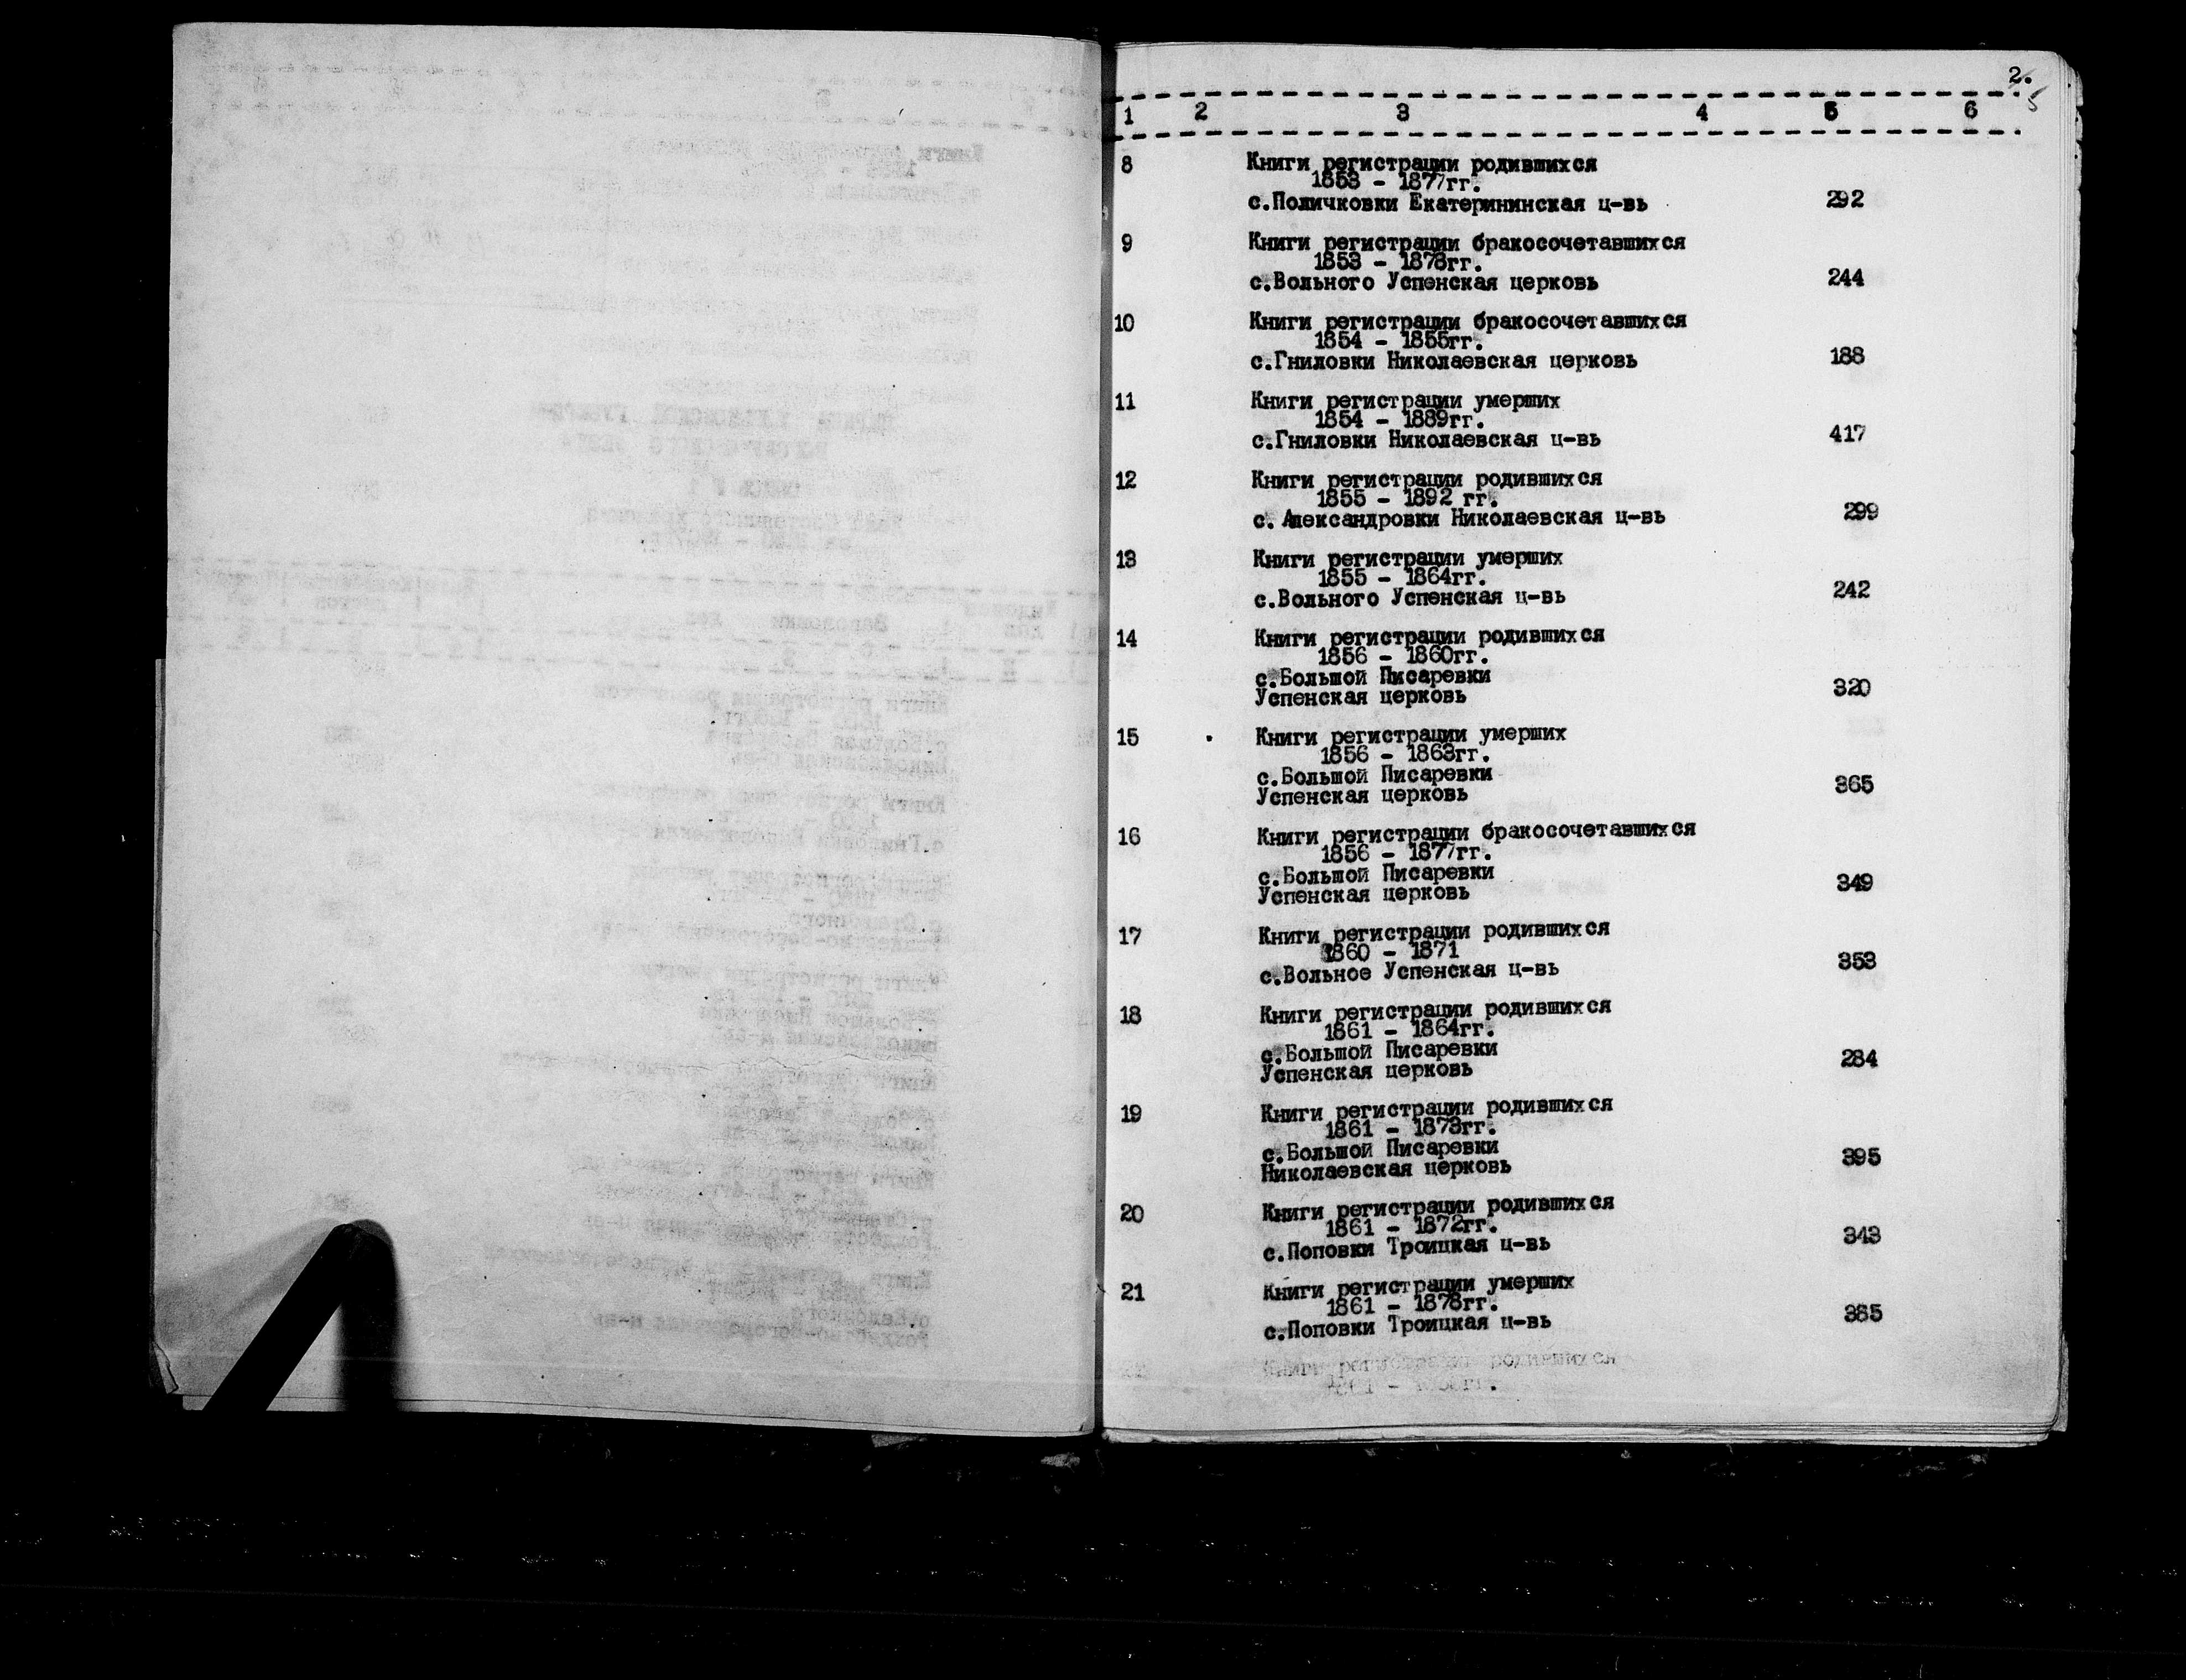 2.
5
1 2 3 4 5 6
8 Книги регистрации родившихся
1853 - 1877гг.
с.Поличковки Екатерининская ц-вь 292
9 Книги регистрации бракосочетавшихся
1853 - 1878гг.
с.Вольного Успенская церковь 244
10 Книги регистрации бракосочетавшихся
1854 - 1855гг.
с.Гниловки Николаевская церковь 188
11 Книги регистрации умерших
1854 - 1889гг.
с.Гниловки Николаевская ц-вь 417
12 Книги регистрации родившихся
1855 - 1892 гг.
с. Александровки Николаевская ц-вь 299
13 Книги регистрации умерших
1855 - 1864гг.
с.Вольного Успенская ц-вь 242
14 Книги регистрации родившихся
1856 - 1860гг.
с.Большой Писаревки
Успенская церковь 320
15 Книги регистрации умерших
1856 - 1863гг.
с.Большой Писаревки
Успенская церковь 365
16 Книги регистрации бракосочетавшихся
1856 - 1877гг.
с.Большой Писаревки
Успенская церковь 349
17 Книги регистрации родившихся
1860 - 1871
с.Вольное Успенская ц-вь 353
18 Книги регистрации родившихся
1861 - 1864гг.
с.Большой Писаревки
Успенская церковь 284
19 Книги регистрации родившихся
1861 - 1873гг.
с.Большой Писаревки
Николаевская церковь 395
20 Книги регистрации родившихся
1861 - 1872гг.
с.Поповки Троицкая ц-вь 343
21 Книги регистрации умерших
1861 - 1878гг.
с.Поповки Троицкая ц-вь 385
Книги регистрации родившихся